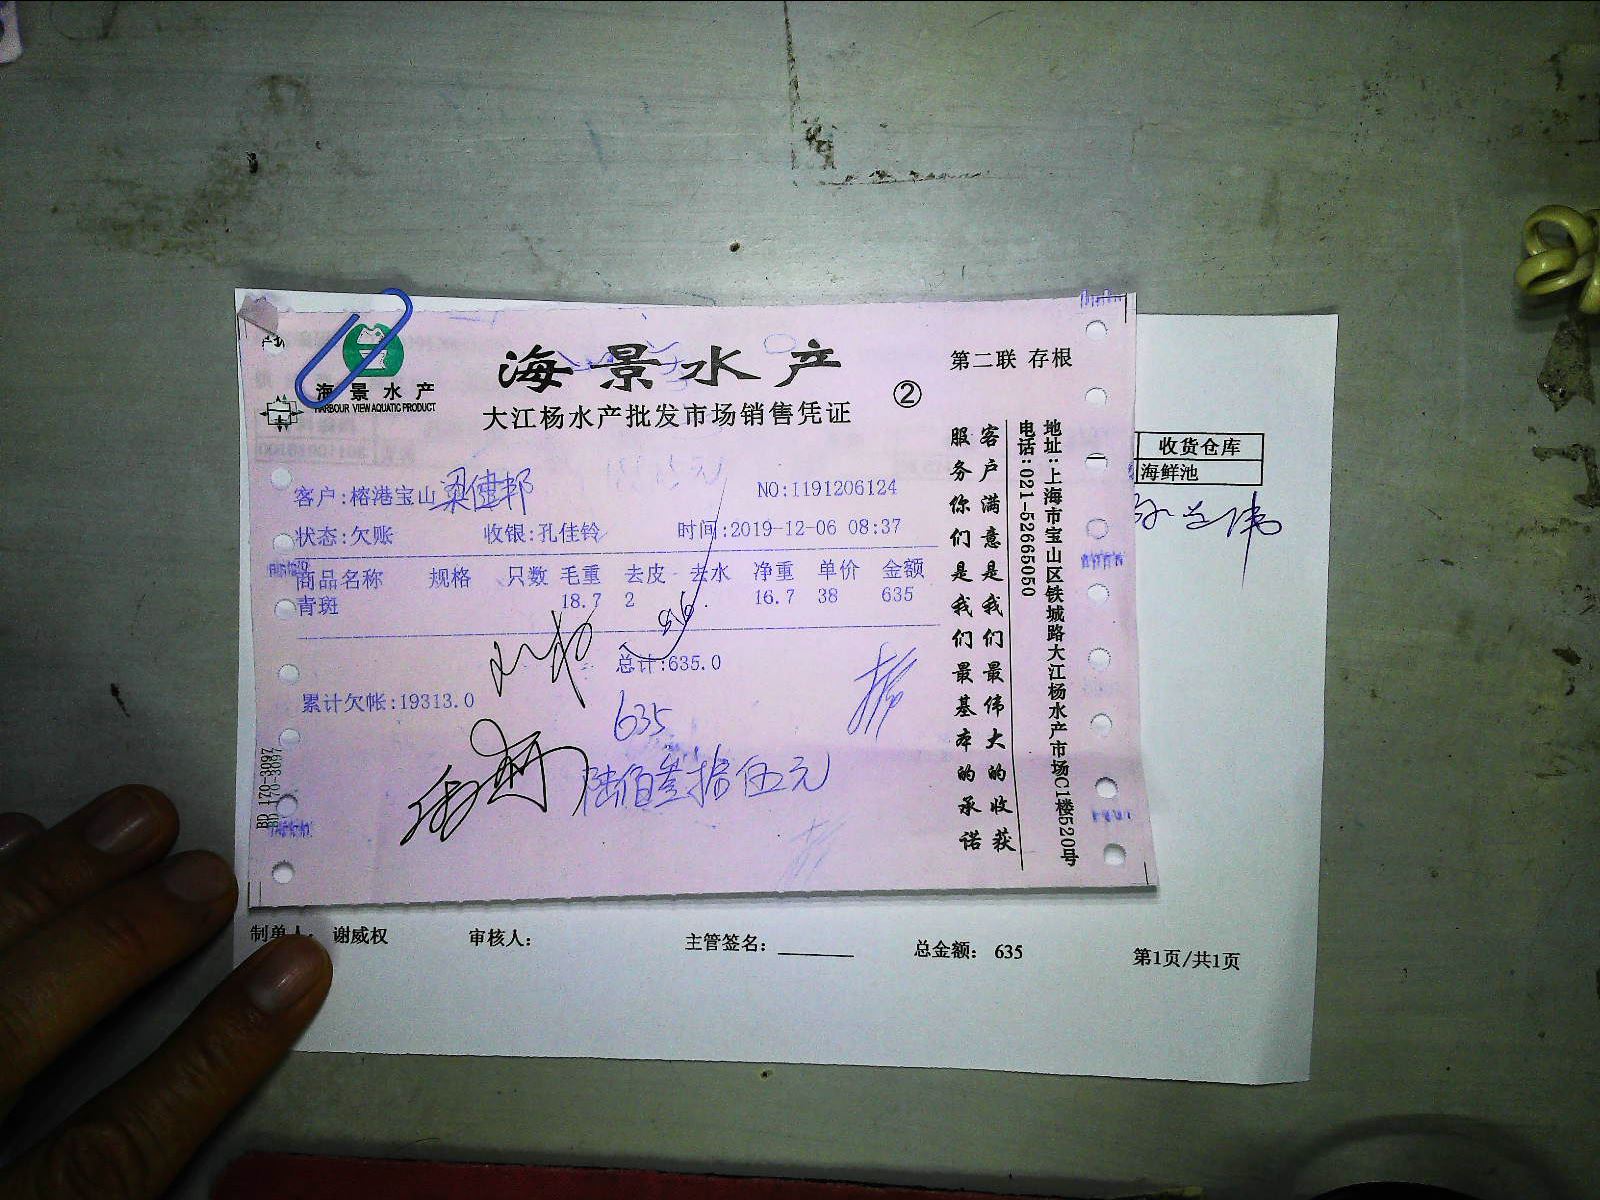 海景水产
HARBOUR VIEW AQUATIC PRODUCT
海景水产
大江杨水产批发市场销售凭证
②
第二联 存根
客户:榕港宝山梁健邦
NO:1191206124
状态:欠账 收银:孔佳铃 时间:2019-12-06 08:37
商品名称 规格 只数 毛重 去皮 去水 净重 单价 金额
青斑 18.7 2 16.7 38 635
总计:635.0
累计欠帐:19313.0
635
陆佰叁拾伍元
客户满意是我们最伟大的收获
服务你们是我们最基本的承诺
地址:上海市宝山区铁城路大江杨水产市场C1楼520号
电话:021-52665050
收货仓库
海鲜池
制单人: 谢威权 审核人: 主管签名: 总金额: 635 第1页/共1页